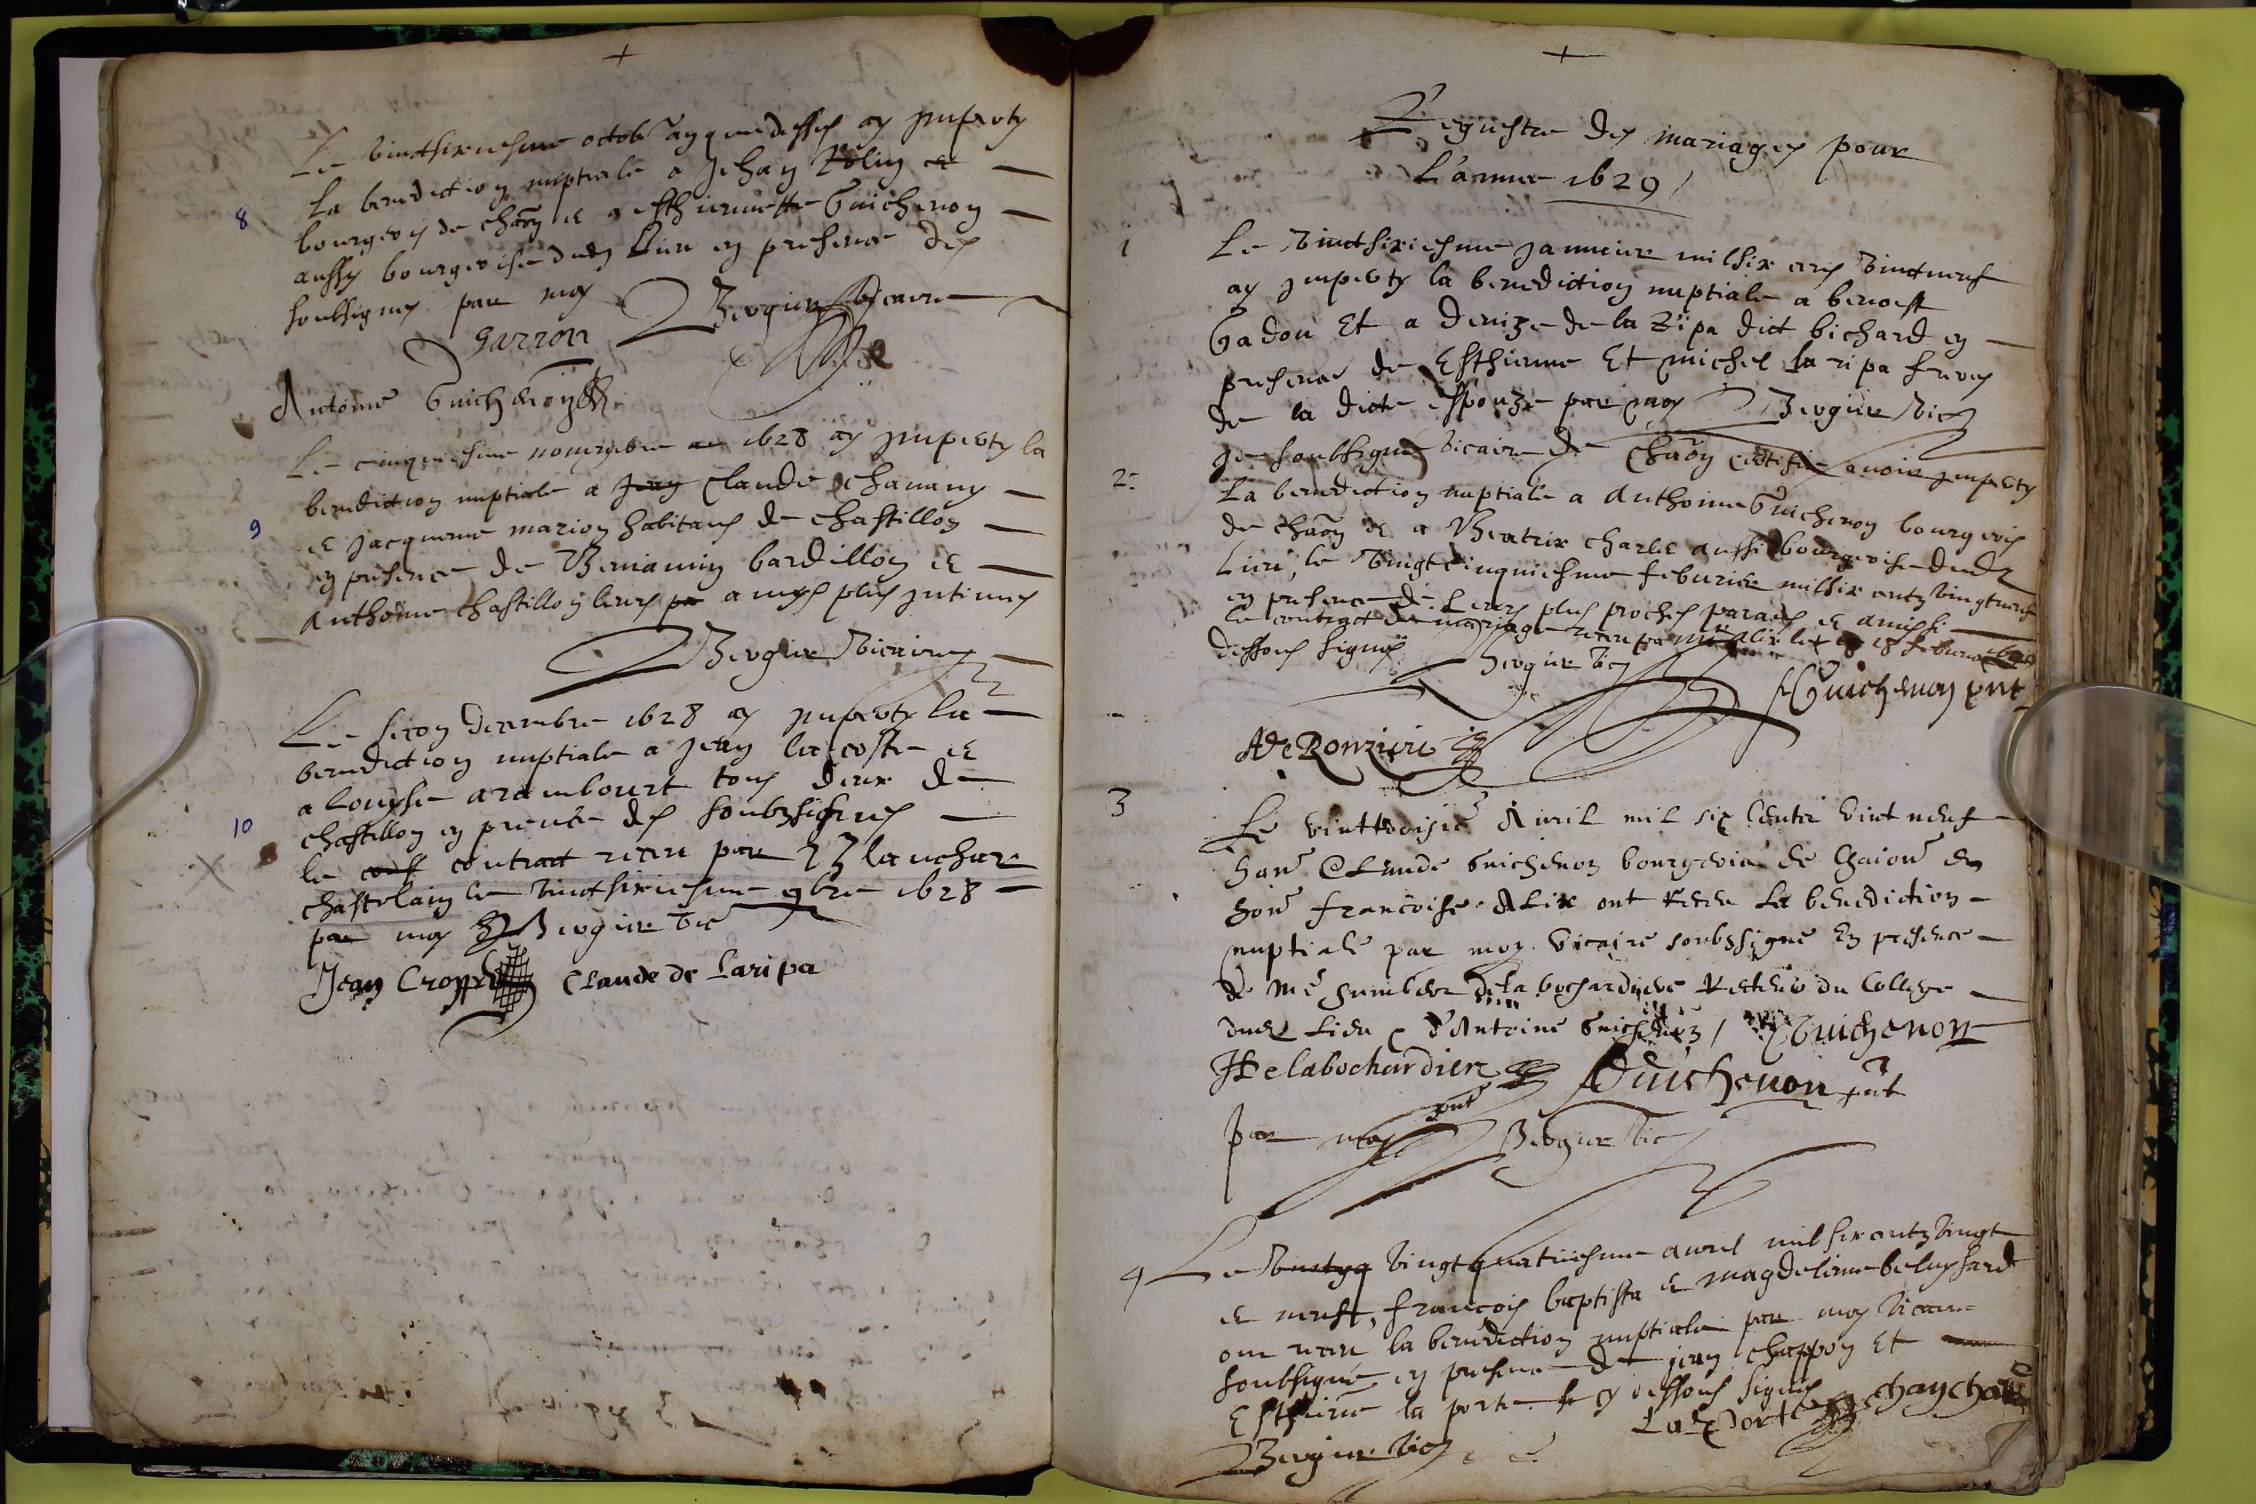 Le vintsixiesme octob. ay que dessus ay imparty
la benediction nuptiale a Jehan et
8
bourgeois de chaōn et a esthiennette Guichenon
aussy bourgeoise dud lieu en presence des
soubsignes par moy Bergier vicaire
Garron
Antoine Guichenon
Le cinquiesme novembre 1628 ay imparty la
benediction nuptiale a Jean Claude chavany
9
et Jacqueme marion habitans de chastillon
en presence de Beniamin bardillon et
Anthoine chastillon leurs amys plus intimes
Bergier vicaire
Le secon decembre 1628 ay imparty la
benediction nuptiale a Jean la coste et
a Louyse arambourt tous deux de
10
chastillon en presēce des soubzsignes
le contract receu par Blanchar
chastelain le vintsixiesme 9bre 1628
par moy Bergier vic
Jean Croppet Claude de Laripa
Regiestre des mariages pour
L'annee 1629
1
Le vintsixiesme Januier mil six cens vintneuf
ay imparty la benediction nuptiale a benoist
Gadou Et a denize de la Ripa dict bichard en
presence de Esthienne Et michel la ripa freres
de la dicte espouze par moy Bergier vic
2
Je soubsigné vicaire de Chaōn certifie avoir imparty
La benediction nuptiale a Anthoine Guichenon bourgeois
de chaōn et a Beatrix charle aussi bourgeoise dud
Lieu, le vingt cinquiesme feburier mil six centz vingtneuf
en presence de Leurs plus proches parans et amis
le contract de mariage receu par feburier 1629
dessous signés Bergier vic
Guichenon pnt
A De Ronzieres
3
Le vinttroisie Avril mil six Centz vint neuf
han Claude Guichenon bourgeois de Chaōn et
hon francoise Alix ont receu La benediction
nuptiale par moy vicaire soubzsigné En presence
de Me humbert de la bochardiere Recteur du College
dud Lieu & d'Antoine Guichenon / Guichenon
H De labochardiere Guichenon pnt
pnt
par moy Bergier vic
4
Le vingt quatriesme avril mil six centz vingt
et neuf, francois baptista et magdeleine beluysard
ont receu la benediction nuptiale par moy vicaire
soubsigné en presence de jean chappon Et
Esthienne la porte cy dessous signés
La Porte
Bergier vic